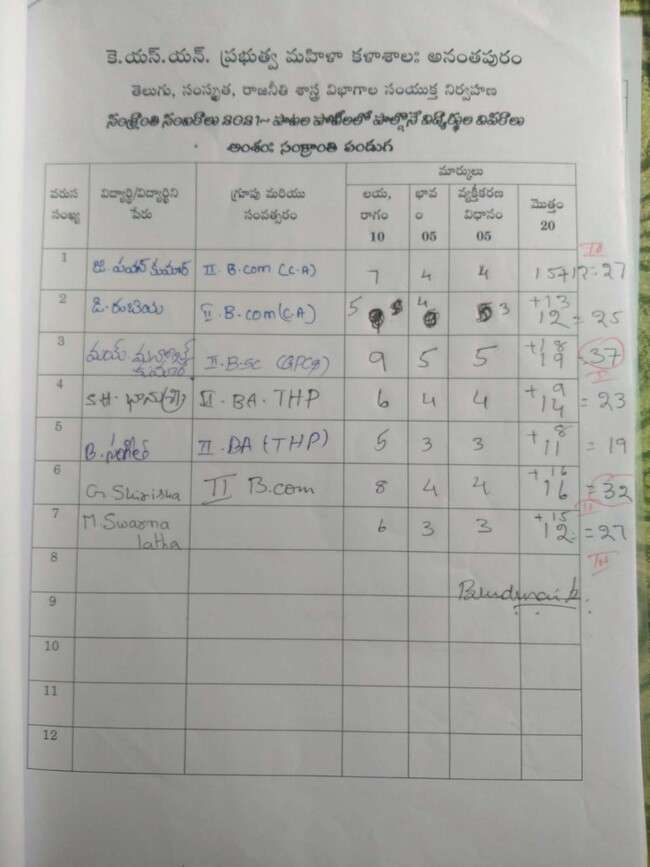 కె.యస్.యన్. ప్రభుత్వ మహిళా కళాశాల: అనంతపురం
తెలుగు, సంస్కృత, రాజనీతి శాస్త్ర విభాగాల సంయుక్త నిర్వహణ
సంక్రాంతి సంబరాలు 2021- పాటల పోటీలలో పాల్గొనే విద్యార్థుల వివరాలు
అంశం: సంక్రాంతి పండుగ
వరుస సంఖ్య విద్యార్థి/విద్యార్థిని పేరు గ్రూపు మరియు సంవత్సరం మార్కులు
లయ, రాగం 10 భావం 05 వ్యక్తీకరణ విధానం 05 మొత్తం 20
1 జి. పవన్ కుమార్ II. B.com (C.A) 7 4 4 15+12=27
2 డి. రుబియ II. B.com (C.A) 5 4 3 +13 12 = 25
3 II. B.sc 9 5 5 +18 19 = 37
4 SH. II. BA. THP 6 4 4 +9 14 = 23
5 B. II. BA (THP) 5 3 3 +8 11 = 19
6 G. Shirisha II B.com 8 4 4 +16 16 = 32
7 M. Swarna latha 6 3 3 +15 12 = 27
8
9
10
11
12